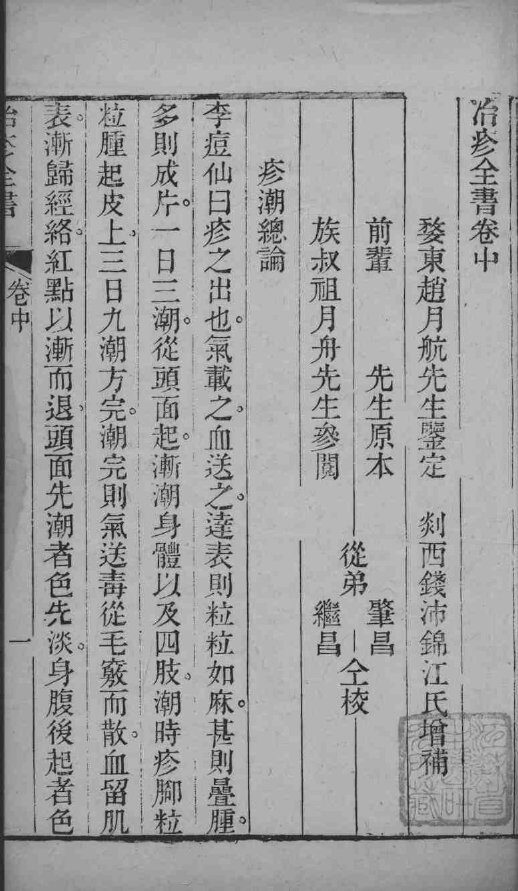 治疹全書卷中
婺東趙月航先生鑒定　剡西錢沛錦江氏增補
前輩　先生原本　從弟肇昌
族叔祖月舟先生參閱　繼昌　仝校
疹潮總論
李痘仙曰疹之出也。氣載之。血送之。達表則粒粒如麻。甚則疊腫。
多則成片。一日三潮。從頭面起。漸潮身體以及四肢。潮時疹腳粒
粒腫起皮上。三日九潮方完。潮完則氣送毒從毛竅而散。血留肌
表。漸歸經絡。紅點以漸而退。頭面先潮者色先淡。身腹後起者色
治疹全書
卷中
一